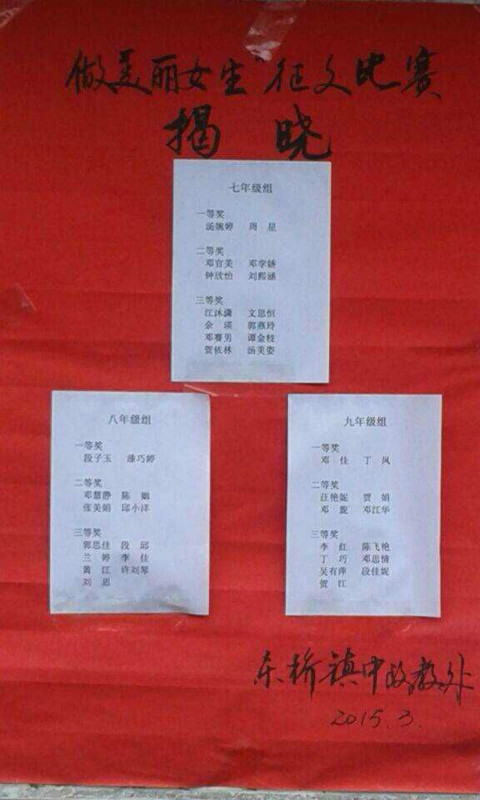 做美丽女生"征文比赛
揭 晓
七年级组
一等奖
汤婉婷 周星
二等奖
邓官美 邓学娇
钟欣怡 刘熙涵
三等奖
江沐潇 文思恒
余瑛 郭燕玲
邓赛男 谭金枝
贺依林 汤美姿
八年级组
一等奖
段子玉 滕巧婷
二等奖
邓慧静 陈姻
张美娟 邱小洋
三等奖
郭思佳 段邱
兰婷 李佳
黄江 许刘琴
刘思
九年级组
一等奖
邓佳 丁凤
二等奖
汪艳妮 贾娟
邓旎 邓江华
三等奖
李红 陈飞艳
丁巧 邓思情
吴有萍 段佳妮
贺江
东桥镇中政教处
2015.3.